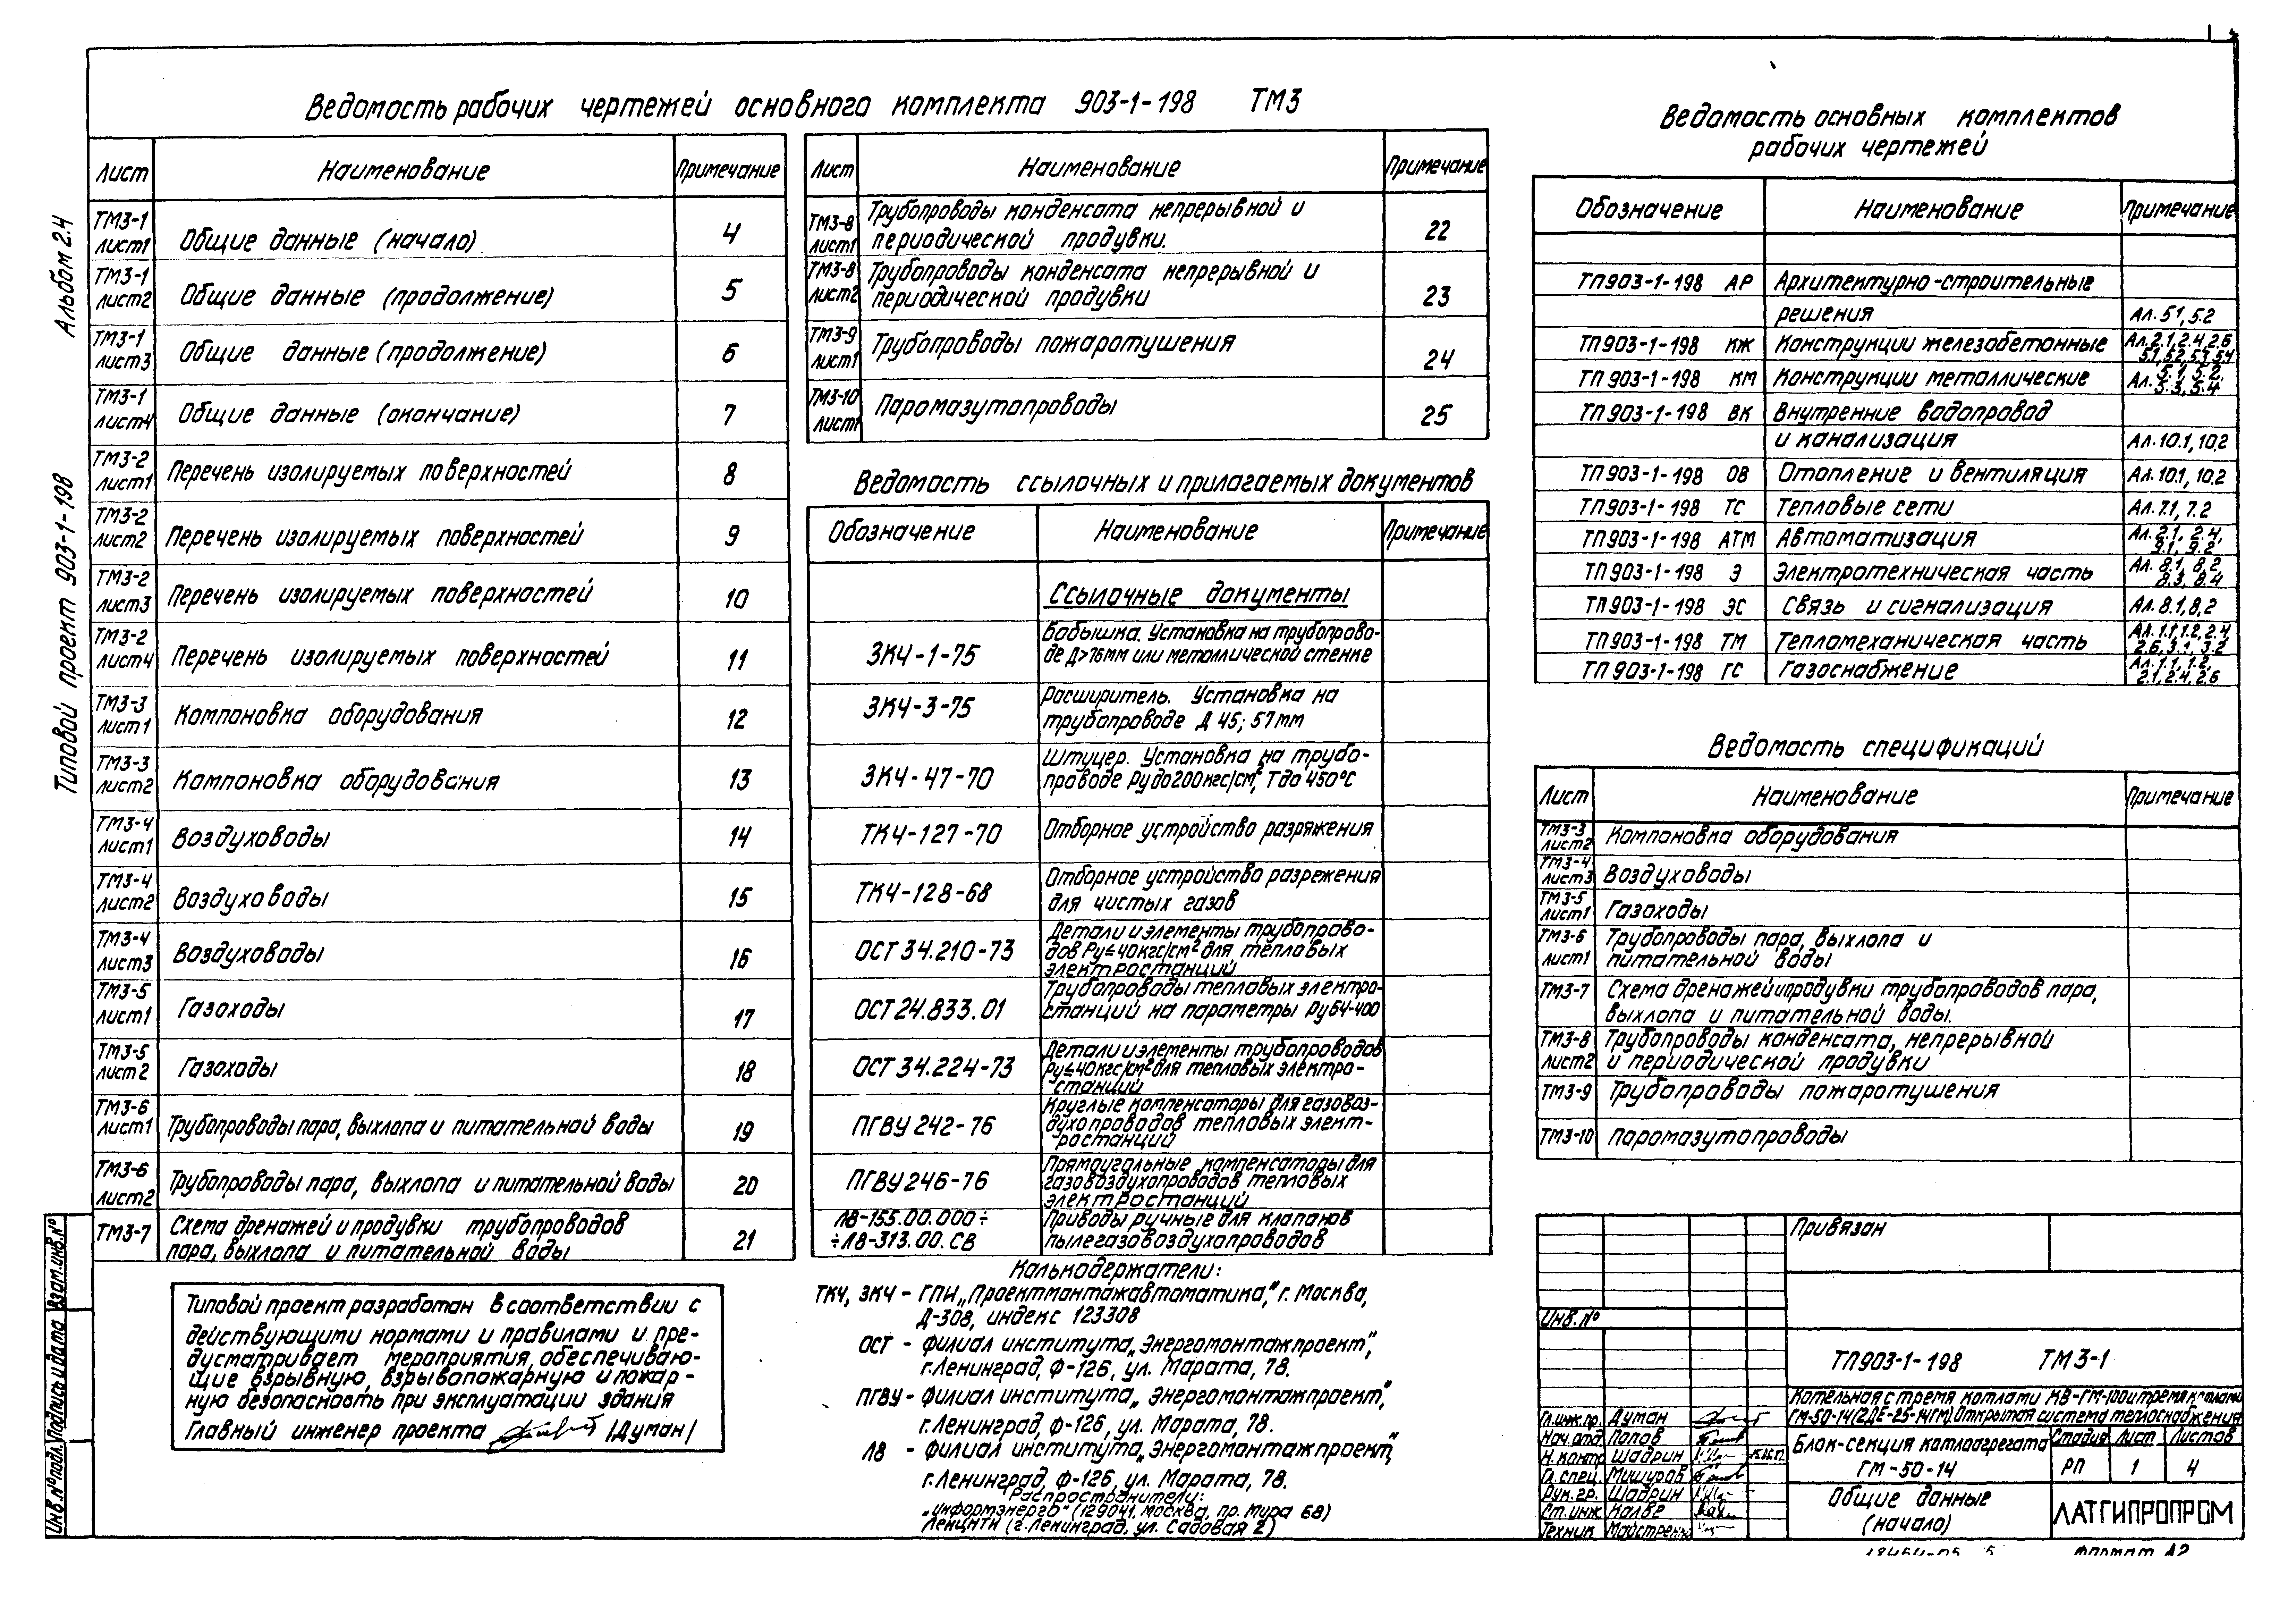 Альбом 2.4
Типовой проект 903-1-198
Ведомость рабочих чертежей основного комплекта 903-1-198 ТМ3
Лист Наименование Примечание
ТМ3-1 лист1 Общие данные (начало) 4
ТМ3-1 лист2 Общие данные (продолжение) 5
ТМ3-1 лист3 Общие данные (продолжение) 6
ТМ3-1 лист4 Общие данные (окончание) 7
ТМ3-2 лист1 Перечень изолируемых поверхностей 8
ТМ3-2 лист2 Перечень изолируемых поверхностей 9
ТМ3-2 лист3 Перечень изолируемых поверхностей 10
ТМ3-2 лист4 Перечень изолируемых поверхностей 11
ТМ3-3 лист1 Компоновка оборудования 12
ТМ3-3 лист2 Компоновка оборудования 13
ТМ3-4 лист1 Воздуховоды 14
ТМ3-4 лист2 Воздуховоды 15
ТМ3-4 лист3 Воздуховоды 16
ТМ3-5 лист1 Газоходы 17
ТМ3-5 лист2 Газоходы 18
ТМ3-6 лист1 Трубопроводы пара, выхлопа и питательной воды 19
ТМ3-6 лист2 Трубопроводы пара, выхлопа и питательной воды 20
ТМ3-7 Схема дренажей и продувки трубопроводов
пара, выхлопа и питательной воды 21
Типовой проект разработан в соответствии с
действующими нормами и правилами и пре-
дусматривает мероприятия, обеспечиваю-
щие взрывную, взрывопожарную и пожар-
ную безопасность при эксплуатации здания
Главный инженер проекта /Думан/
Лист Наименование Примечание
ТМ3-8 лист1 Трубопроводы конденсата непрерывной и
периодической продувки. 22
ТМ3-8 лист2 Трубопроводы конденсата непрерывной и
периодической продувки 23
ТМ3-9 лист1 Трубопроводы пожаротушения 24
ТМ3-10 лист1 Паромазутопроводы 25
Ведомость ссылочных и прилагаемых документов
Обозначение Наименование Примечание
Ссылочные документы
ЗК4-1-75 Бобышка. Установка на трубопрово-
де Д>76мм или металлической стенке
ЗК4-3-75 Расширитель. Установка на
трубопроводе Д 45; 57мм
ЗК4-47-70 Штуцер. Установка на трубо-
проводе Ру до 200 кгс/см², Т до 450°С
ТК4-127-70 Отборное устройство разряжения
ТК4-128-68 Отборное устройство разрежения
для чистых газов
ОСТ 34.210-73 Детали и элементы трубопрово-
дов Ру≤40кгс/см² для тепловых
электростанций
ОСТ 24.833.01 Трубопроводы тепловых электро-
станций на параметры Ру64-400
ОСТ 34.224-73 Детали и элементы трубопроводов
Ру≤40кгс/см² для тепловых электро-
станций
ПГВУ 242-76 Круглые компенсаторы для газовоз-
духопроводов тепловых элект-
ростанций
ПГВУ 246-76 Прямоугольные компенсаторы для
газовоздухопроводов тепловых
электростанций
Л8-155.00.000÷ Приводы ручные для клапанов
÷Л8-313.00.СВ пылегазовоздухопроводов
Калькодержатели:
ТК4, ЗК4 - ГПИ „Проектмонтажавтоматика,” г. Москва,
Д-308, индекс 123308
ОСТ - Филиал института „Энергомонтажпроект”,
г.Ленинград, Ф-126, ул. Марата, 78.
ПГВУ - Филиал института „Энергомонтажпроект”,
г.Ленинград, Ф-126, ул. Марата, 78.
Л8 - Филиал института „Энергомонтажпроект”,
г.Ленинград, Ф-126, ул. Марата, 78.
Распространители:
„Информэнерго” (129041, Москва, пр. Мира 68)
ЛенЦНТИ (г.Ленинград, ул. Садовая 2)
Ведомость основных комплектов
рабочих чертежей
Обозначение Наименование Примечание
ТП903-1-198 АР Архитектурно-строительные
решения Ал. 5.1, 5.2
ТП903-1-198 КЖ Конструкции железобетонные Ал.2.1, 2.4, 2.6
5.1, 5.2, 5.3, 5.4
ТП 903-1-198 КМ Конструкции металлические Ал. 5.1, 5.2,
5.3, 5.4
ТП 903-1-198 ВК Внутренние водопровод
и канализация Ал.10.1, 10.2
ТП903-1-198 ОВ Отопление и вентиляция Ал.10.1, 10.2
ТП903-1-198 ТС Тепловые сети Ал.7.1, 7.2
ТП903-1-198 АТМ Автоматизация Ал.2.1, 2.4,
9.1, 9.2
ТП903-1-198 Э Электротехническая часть Ал. 8.1, 8.2
8.3, 8.4
ТП903-1-198 ЭС Связь и сигнализация Ал.8.1, 8.2
ТП903-1-198 ТМ Тепломеханическая часть Ал.1.1, 1.2, 2.4
2.6, 3.1, 3.2
ТП 903-1-198 ГС Газоснабжение Ал.1.1, 1.2,
2.1, 2.4, 2.6
Ведомость спецификаций
Лист Наименование Примечание
ТМ3-3 лист2 Компоновка оборудования
ТМ3-4 лист3 Воздуховоды
ТМ3-5 лист1 Газоходы
ТМ3-6 лист1 Трубопроводы пара, выхлопа и
питательной воды
ТМ3-7 Схема дренажей и продувки трубопроводов пара,
выхлопа и питательной воды.
ТМ3-8 лист2 Трубопроводы конденсата, непрерывной
и периодической продувки
ТМ3-9 Трубопроводы пожаротушения
ТМ3-10 Паромазутопроводы
Привязан
Инв. №
ТП903-1-198 ТМ3-1
Котельная с тремя котлами КВ-ГМ-100 и тремя котлами
ГМ-50-14(2ДЕ-25-14ГМ). Открытая система теплоснабжения
Гл.инж.пр. Думан
Нач.отд. Попов
Н.контр Шадрин
Гл.спец. Мишуров
Рук.гр. Шадрин
Ст.инж Калве
Техник Майстренко
Блок-секция котлоагрегата
ГМ-50-14
Стадия Лист Листов
РП 1 4
Общие данные
(начало)
ЛАТГИПРОПРОМ
Инв.№подл. Подпись и дата Взам.инв.№
18464-05 5 Формат А2